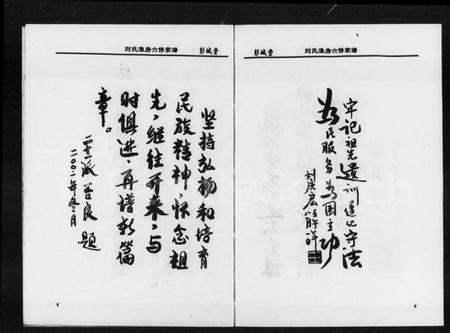 刘氏淮房六修家谱
彭城堂
坚持弘扬和培育
民族精神,怀念祖
先,继往开来,与
时俱进,再谱新篇
章。
二〇〇二年冬月
题
8
彭城堂
刘氏淮房六修家谱
牢记祖先遗训遵纪守法
为民服务为国立功
9